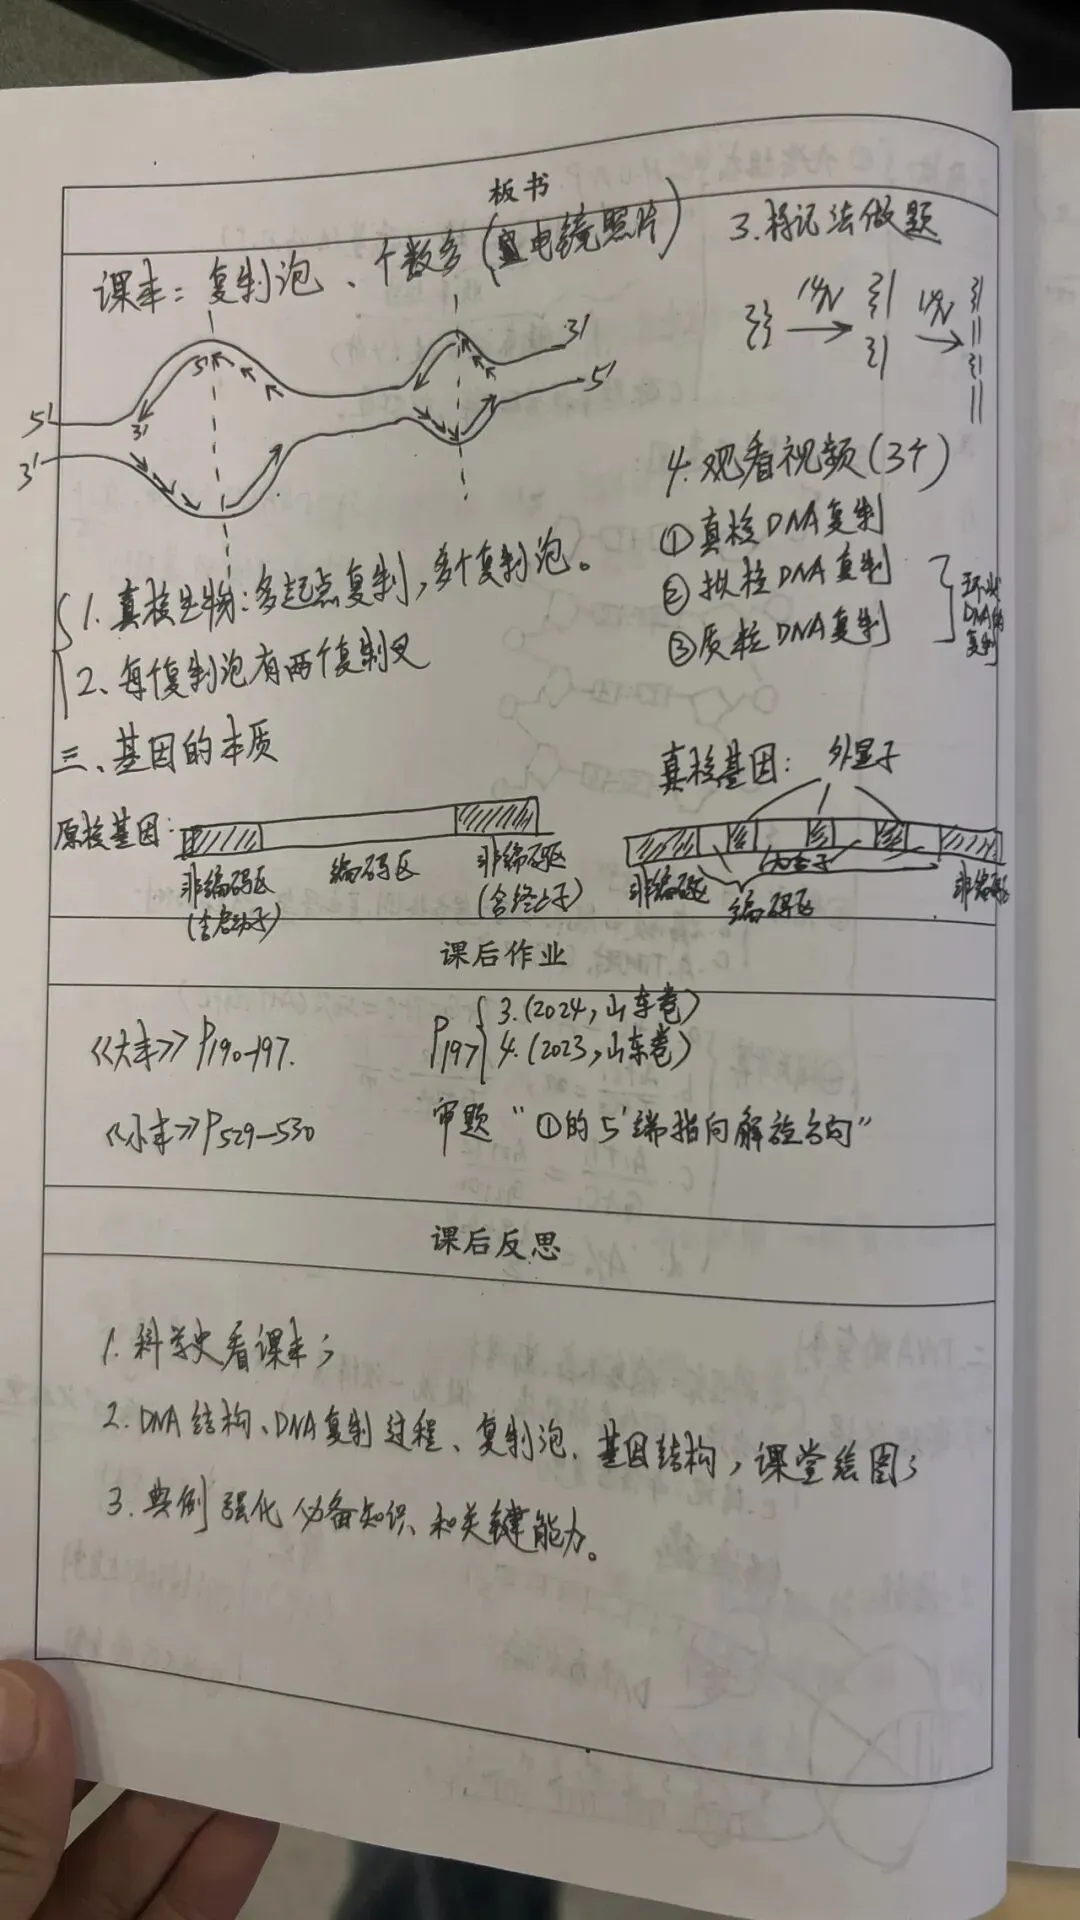 板书
课本：复制泡、个数多（电镜照片）
5' 3' 5' 3' 3' 5'
1. 真核生物：多起点复制，多个复制泡。
2、每个复制泡有两个复制叉
3.标记法做题
14N 14N
4. 观看视频（3个）
①真核DNA复制
②拟核DNA复制
③质粒DNA复制
环状DNA的复制
三、基因的本质
原核基因：
非编码区（含启动子） 编码区 非编码区（含终止子）
真核基因： 外显子
内含子
非编码区 编码区 非编码区
课后作业
《大本》P190-197.
P197 3.(2024,山东卷)
4.(2023,山东卷)
《小本》P529—530
审题“①的5'端指向解旋方向”
课后反思
1. 科学史看课本；
2. DNA结构、DNA复制过程、复制泡、基因结构，课堂绘图；
3. 典例强化必备知识和关键能力。